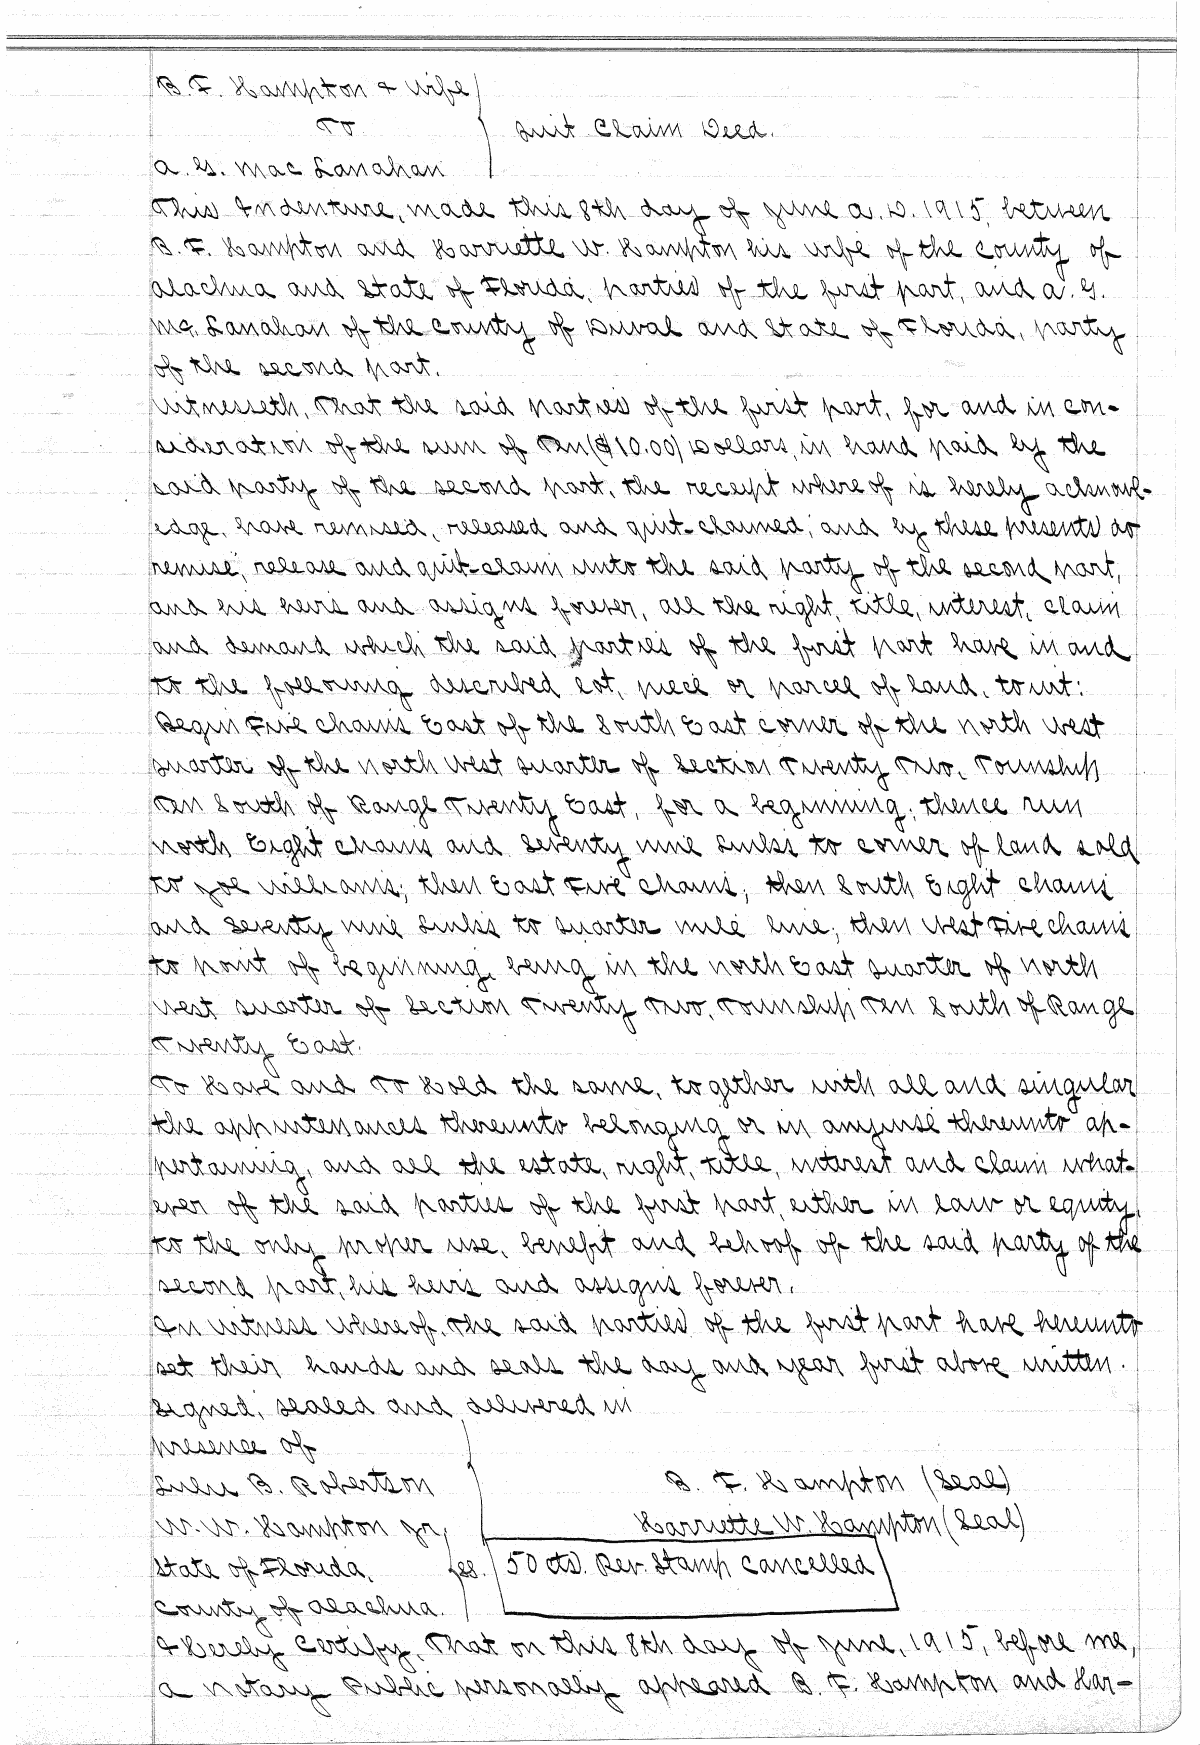 B. F. Hampton & Wife
To
Quit Claim Deed.
A. G. Mac Lanahan
This Indenture, made this 8th day of June A. D. 1915, between
B. F. Hampton and Harriette W. Hampton his wife of the County of
Alachua and State of Florida, parties of the first part, and A. G.
Mc. Lanahan of the County of Duval and State of Florida, party
of the second part.
Witnesseth, That the said parties of the first part, for and in con-
sideration of the sum of Ten ($10.00) Dollars, in hand paid by the
said party of the second part, the receipt whereof is hereby acknowl-
edge, have remised, released and quit-claimed, and by these presents do
remise, release and quit-claim unto the said party of the second part,
and his heirs and assigns forever, all the right, title, interest, claim
and demand which the said parties of the first part have in and
to the following described lot, piece or parcel of land, towit:
Begin Five chains East of the South East corner of the North West
Quarter of the North West Quarter of Section Twenty Two, Township
Ten South of Range Twenty East, for a beginning; thence run
North Eight chains and Seventy nine Links to corner of land sold
to Joe Williams; then East Five chains; then South Eight chains
and Seventy nine Links to Quarter mile line; then West Five chains
to point of beginning, being in the North East Quarter of North
West Quarter of Section Twenty Two, Township Ten South of Range
Twenty East.
To Have and To Hold the same, together with all and singular
the appurtenances thereunto belonging or in anywise thereunto ap-
pertaining, and all the estate, right, title, interest and claim what-
ever of the said parties of the first part, either in law or equity,
to the only proper use, benefit and behoof of the said party of the
second part, his heirs and assigns forever.
In Witness Whereof, The said parties of the first part have hereunto
set their hands and seals the day and year first above written.
Signed, sealed and delivered in
presence of
Lulu B. Robertson B. F. Hampton (Seal)
W. W. Hampton Jr, Harriette W. Hampton (Seal)
State of Florida, ss. 50 cts. Rev. Stamp Cancelled
County of Alachua.
I Hereby Certify, That on this 8th day of June, 1915, before me,
a Notary Public personally appeared B. F. Hampton and Har-